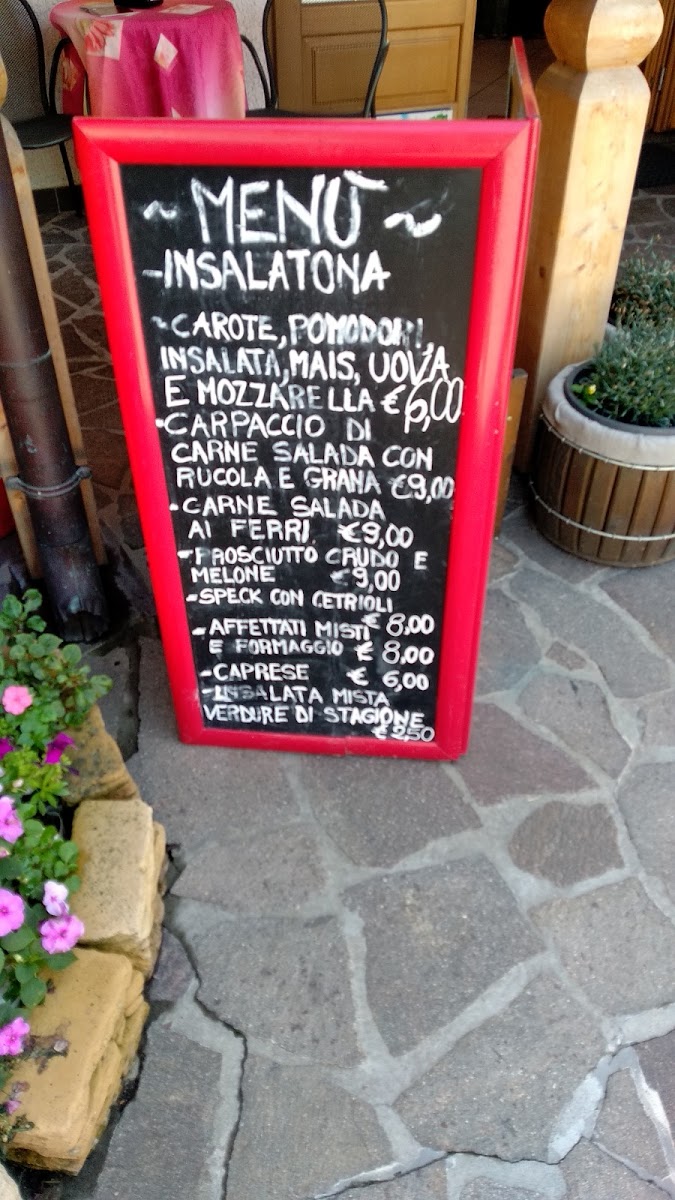 ~ MENÙ ~
-INSALATONA
~CAROTE, POMODORI,
INSALATA, MAIS, UOVA
E MOZZARELLA € 6,00
•CARPACCIO DI
CARNE SALADA CON
RUCOLA E GRANA €9,00
•CARNE SALADA
AI FERRI €9,00
-PROSCIUTTO CRUDO E
MELONE €9,00
-SPECK CON CETRIOLI
€ 8,00
-AFFETTATI MISTI
E FORMAGGIO € 8,00
-CAPRESE € 6,00
-INSALATA MISTA
VERDURE DI STAGIONE
€ 2,50